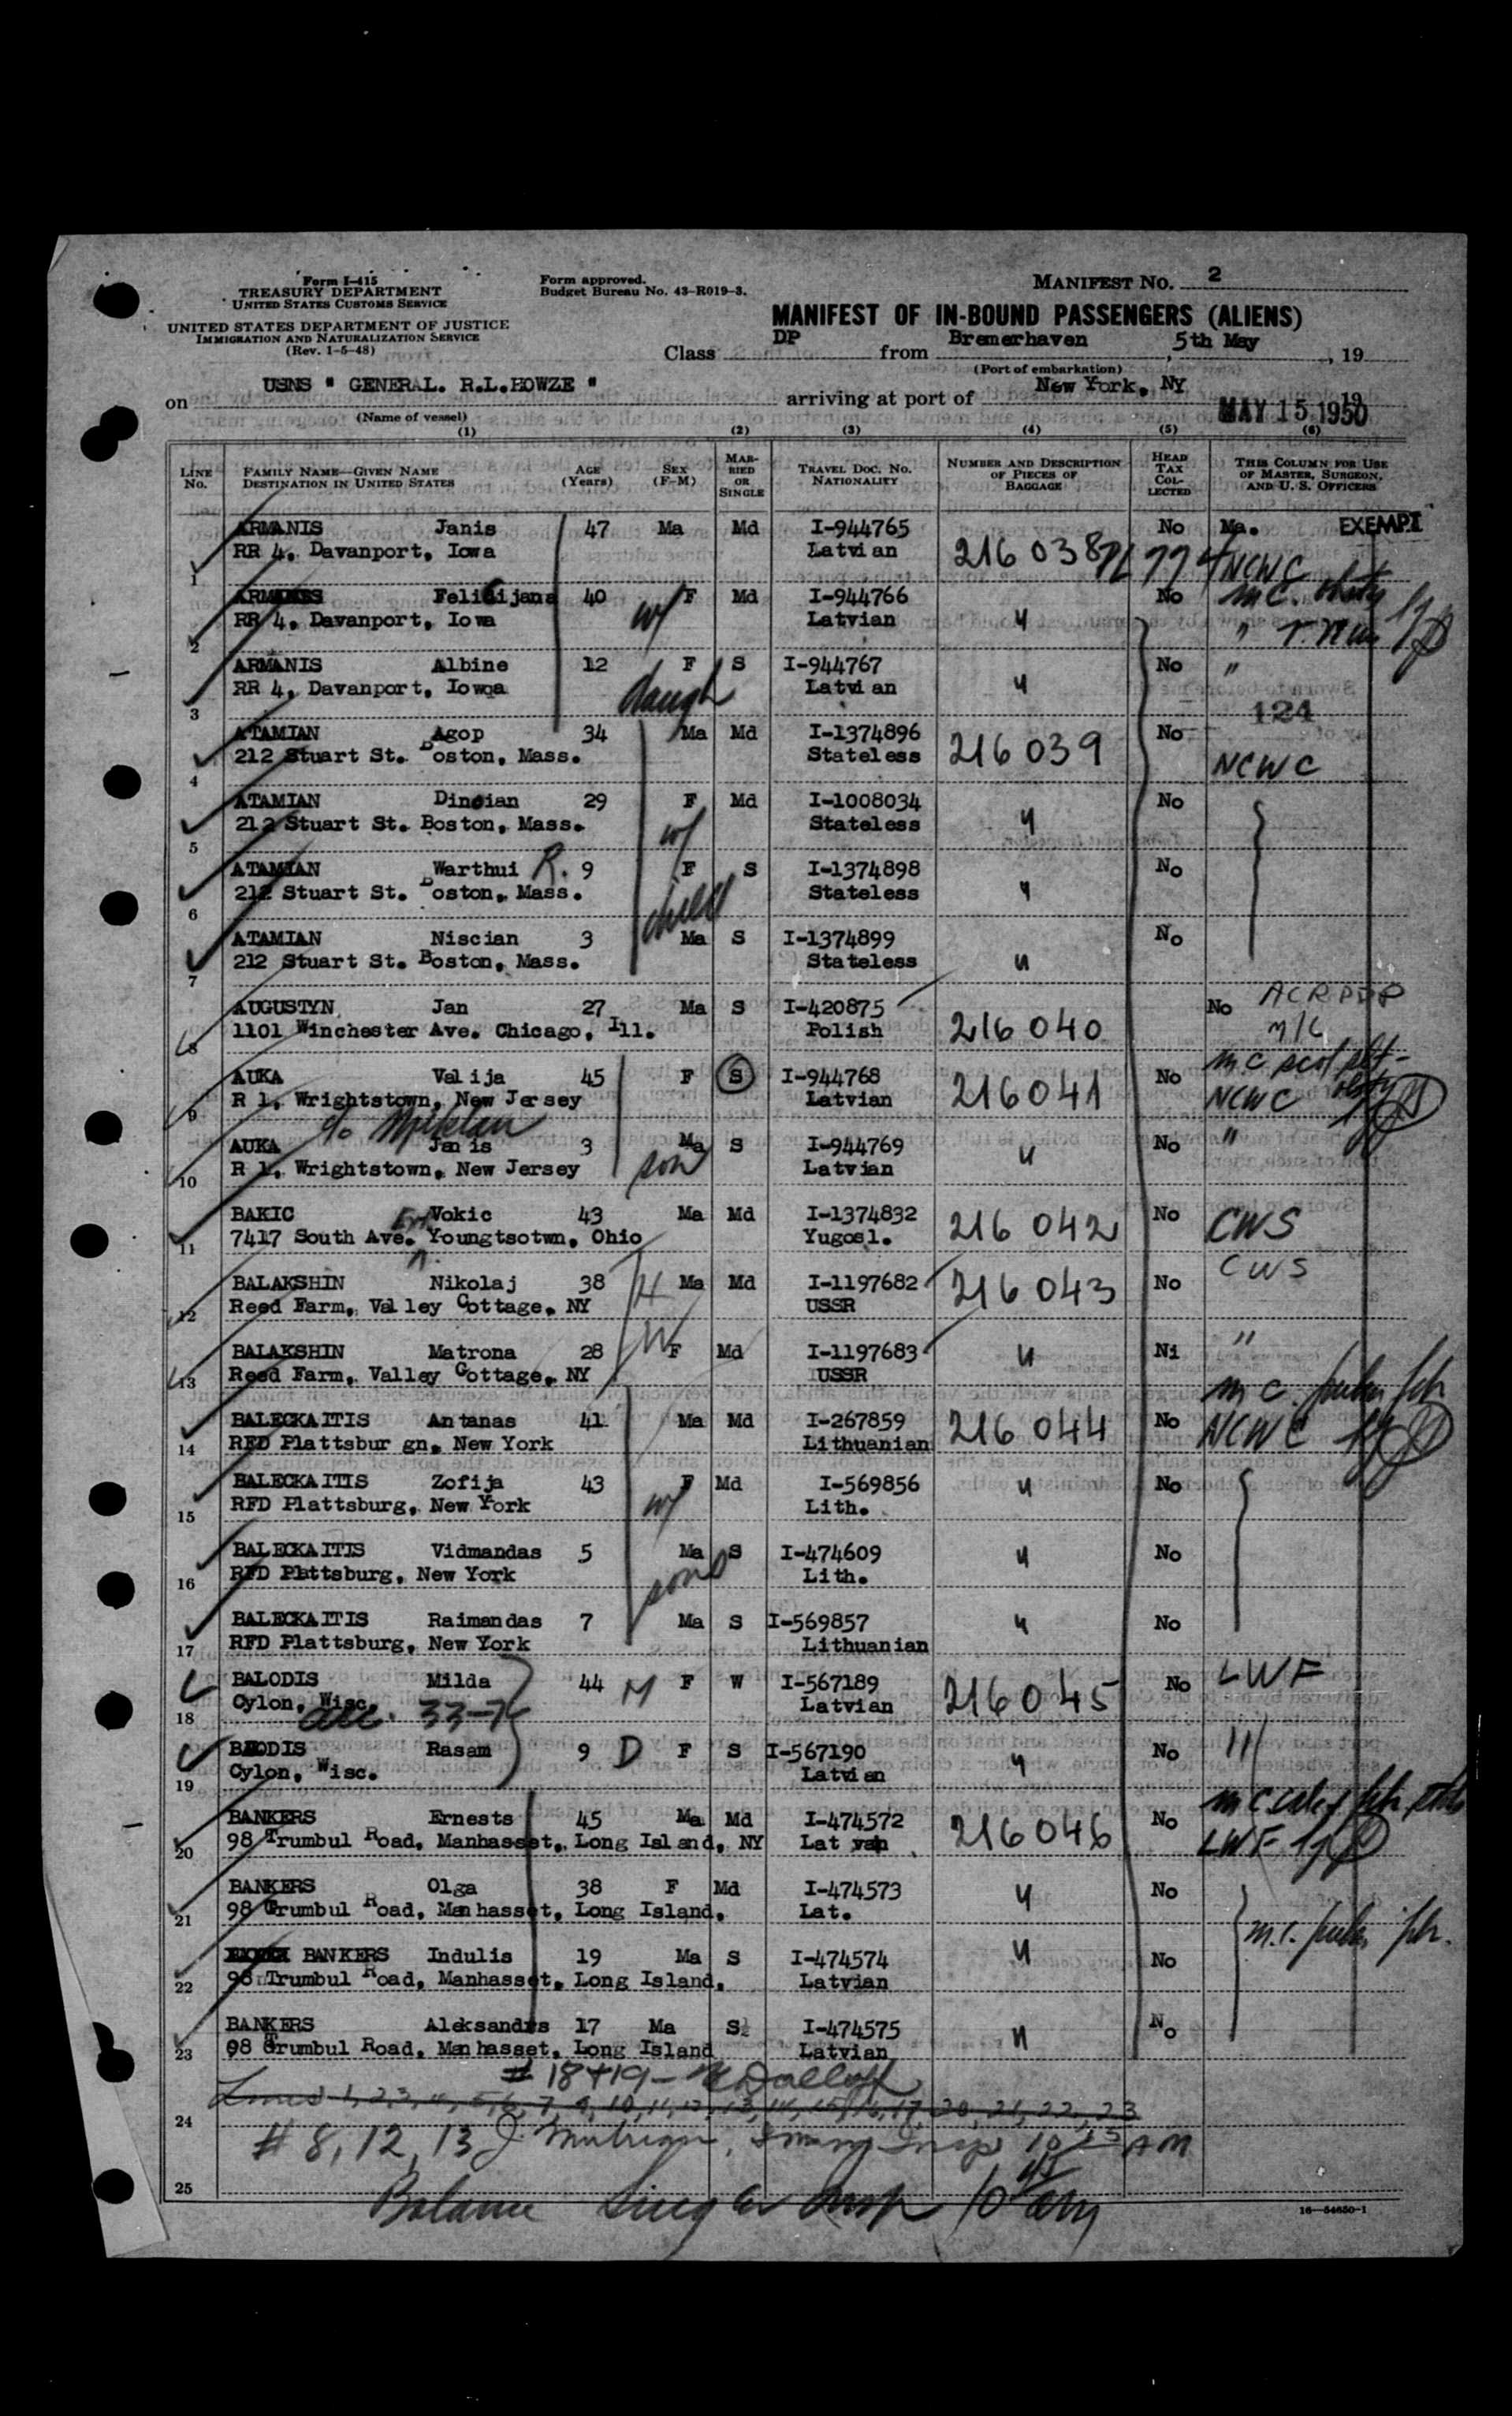 Form I-415
TREASURY DEPARTMENT
UNITED STATES CUSTOMS SERVICE
UNITED STATES DEPARTMENT OF JUSTICE
IMMIGRATION AND NATURALIZATION SERVICE
(Rev. 1-5-48)
Form approved.
Budget Bureau No. 43-R019-3.
MANIFEST NO. 2
MANIFEST OF IN-BOUND PASSENGERS (ALIENS)
Class DP from Bremerhaven, 5th May, 19
(Port of embarkation)
on USNS " GENERAL. R.L.HOWZE " arriving at port of New York, NY MAY 15 1950 19
(Name of vessel)
(1) (2) (3) (4) (5) (6)
LINE No. FAMILY NAME—GIVEN NAME DESTINATION IN UNITED STATES AGE (Years) SEX (F-M) MARRIED OR SINGLE TRAVEL DOC. NO. NATIONALITY NUMBER AND DESCRIPTION OF PIECES OF BAGGAGE HEAD TAX COLLECTED THIS COLUMN FOR USE OF MASTER, SURGEON, AND U. S. OFFICERS
ARMANIS Janis 47 Ma Md I-944765 No Ma. EXEMPT
1 RR 4, Davanport, Iowa Latvian 216 038 NCWC
Felicijana 40 w/ F Md I-944766 No
2 RR 4, Davanport, Iowa Latvian "
ARMANIS Albine 12 F S I-944767 No "
3 RR 4, Davanport, Iowoa daugh Latvian " 124
ATAMIAN Agop 34 Ma Md I-1374896 No
4 212 Stuart St. Boston, Mass. Stateless 216 039 NCWC
ATAMIAN Dincian 29 F Md I-1008034 No
5 212 Stuart St. Boston, Mass. w/ Stateless "
ATAMIAN Warthui R. 9 F S I-1374898 No
6 212 Stuart St. Boston, Mass. Stateless "
ATAMIAN Niscian 3 Ma S I-1374899 No
7 212 Stuart St. Boston, Mass. Stateless "
AUGUSTYN Jan 27 Ma S I-420875 No
8 1101 Winchester Ave. Chicago, Ill. Polish 216 040
AUKA Valija 45 F S I-944768 No
9 R 1, Wrightstown, New Jersey Latvian 216041 NCWC
AUKA Janis 3 Ma S I-944769 No "
10 R 1, Wrightstown, New Jersey son Latvian "
BAKIC Vokic 43 Ma Md I-1374832 No
11 7417 South Ave. Youngtsotwn, Ohio Yugosl. 216 042 CWS
BALAKSHIN Nikolaj 38 H Ma Md I-1197682 No CWS
12 Reed Farm, Valley Cottage, NY USSR 216 043
BALAKSHIN Matrona 28 W F Md I-1197683 Ni "
13 Reed Farm, Valley Cottage, NY USSR "
BALECKAITIS Antanas 41 Ma Md I-267859 No
14 RFD Plattsbur gn, New York Lithuanian 216 044 NCWC
BALECKAITIS Zofija 43 F Md I-569856 No
15 RFD Plattsburg, New York w/ Lith. "
BALECKAITIS Vidmandas 5 Ma S I-474609 No
16 RFD Plattsburg, New York sons Lith. "
BALECKAITIS Raimandas 7 Ma S I-569857 No
17 RFD Plattsburg, New York Lithuanian "
BALODIS Milda 44 M F W I-567189 No LWF
18 Cylon, Wisc. 33-7 Latvian 216045
Rasam 9 D F S I-567190 No
19 Cylon, Wisc. Latvian "
BANKERS Ernests 45 Ma Md I-474572 No
20 98 Trumbul Road, Manhasset, Long Island, NY 216046 LWF
BANKERS Olga 38 F Md I-474573 No
21 98 Trumbul Road, Manhasset, Long Island. Lat. "
BANKERS Indulis 19 Ma S I-474574 No
22 98 Trumbul Road, Manhasset, Long Island. Latvian "
BANKERS Aleksandrs 17 Ma S I-474575 No
23 98 Trumbul Road, Manhasset, Long Island Latvian "
# 18+19 -
24 Lines 1, 2, 3, 4, 5, 6, 7, 9, 10, 11, 12, 13, 14, 15, 16, 17, 20, 21, 22, 23
# 8, 12, 13 AM
25
Balance Insp 10
16—54650-1